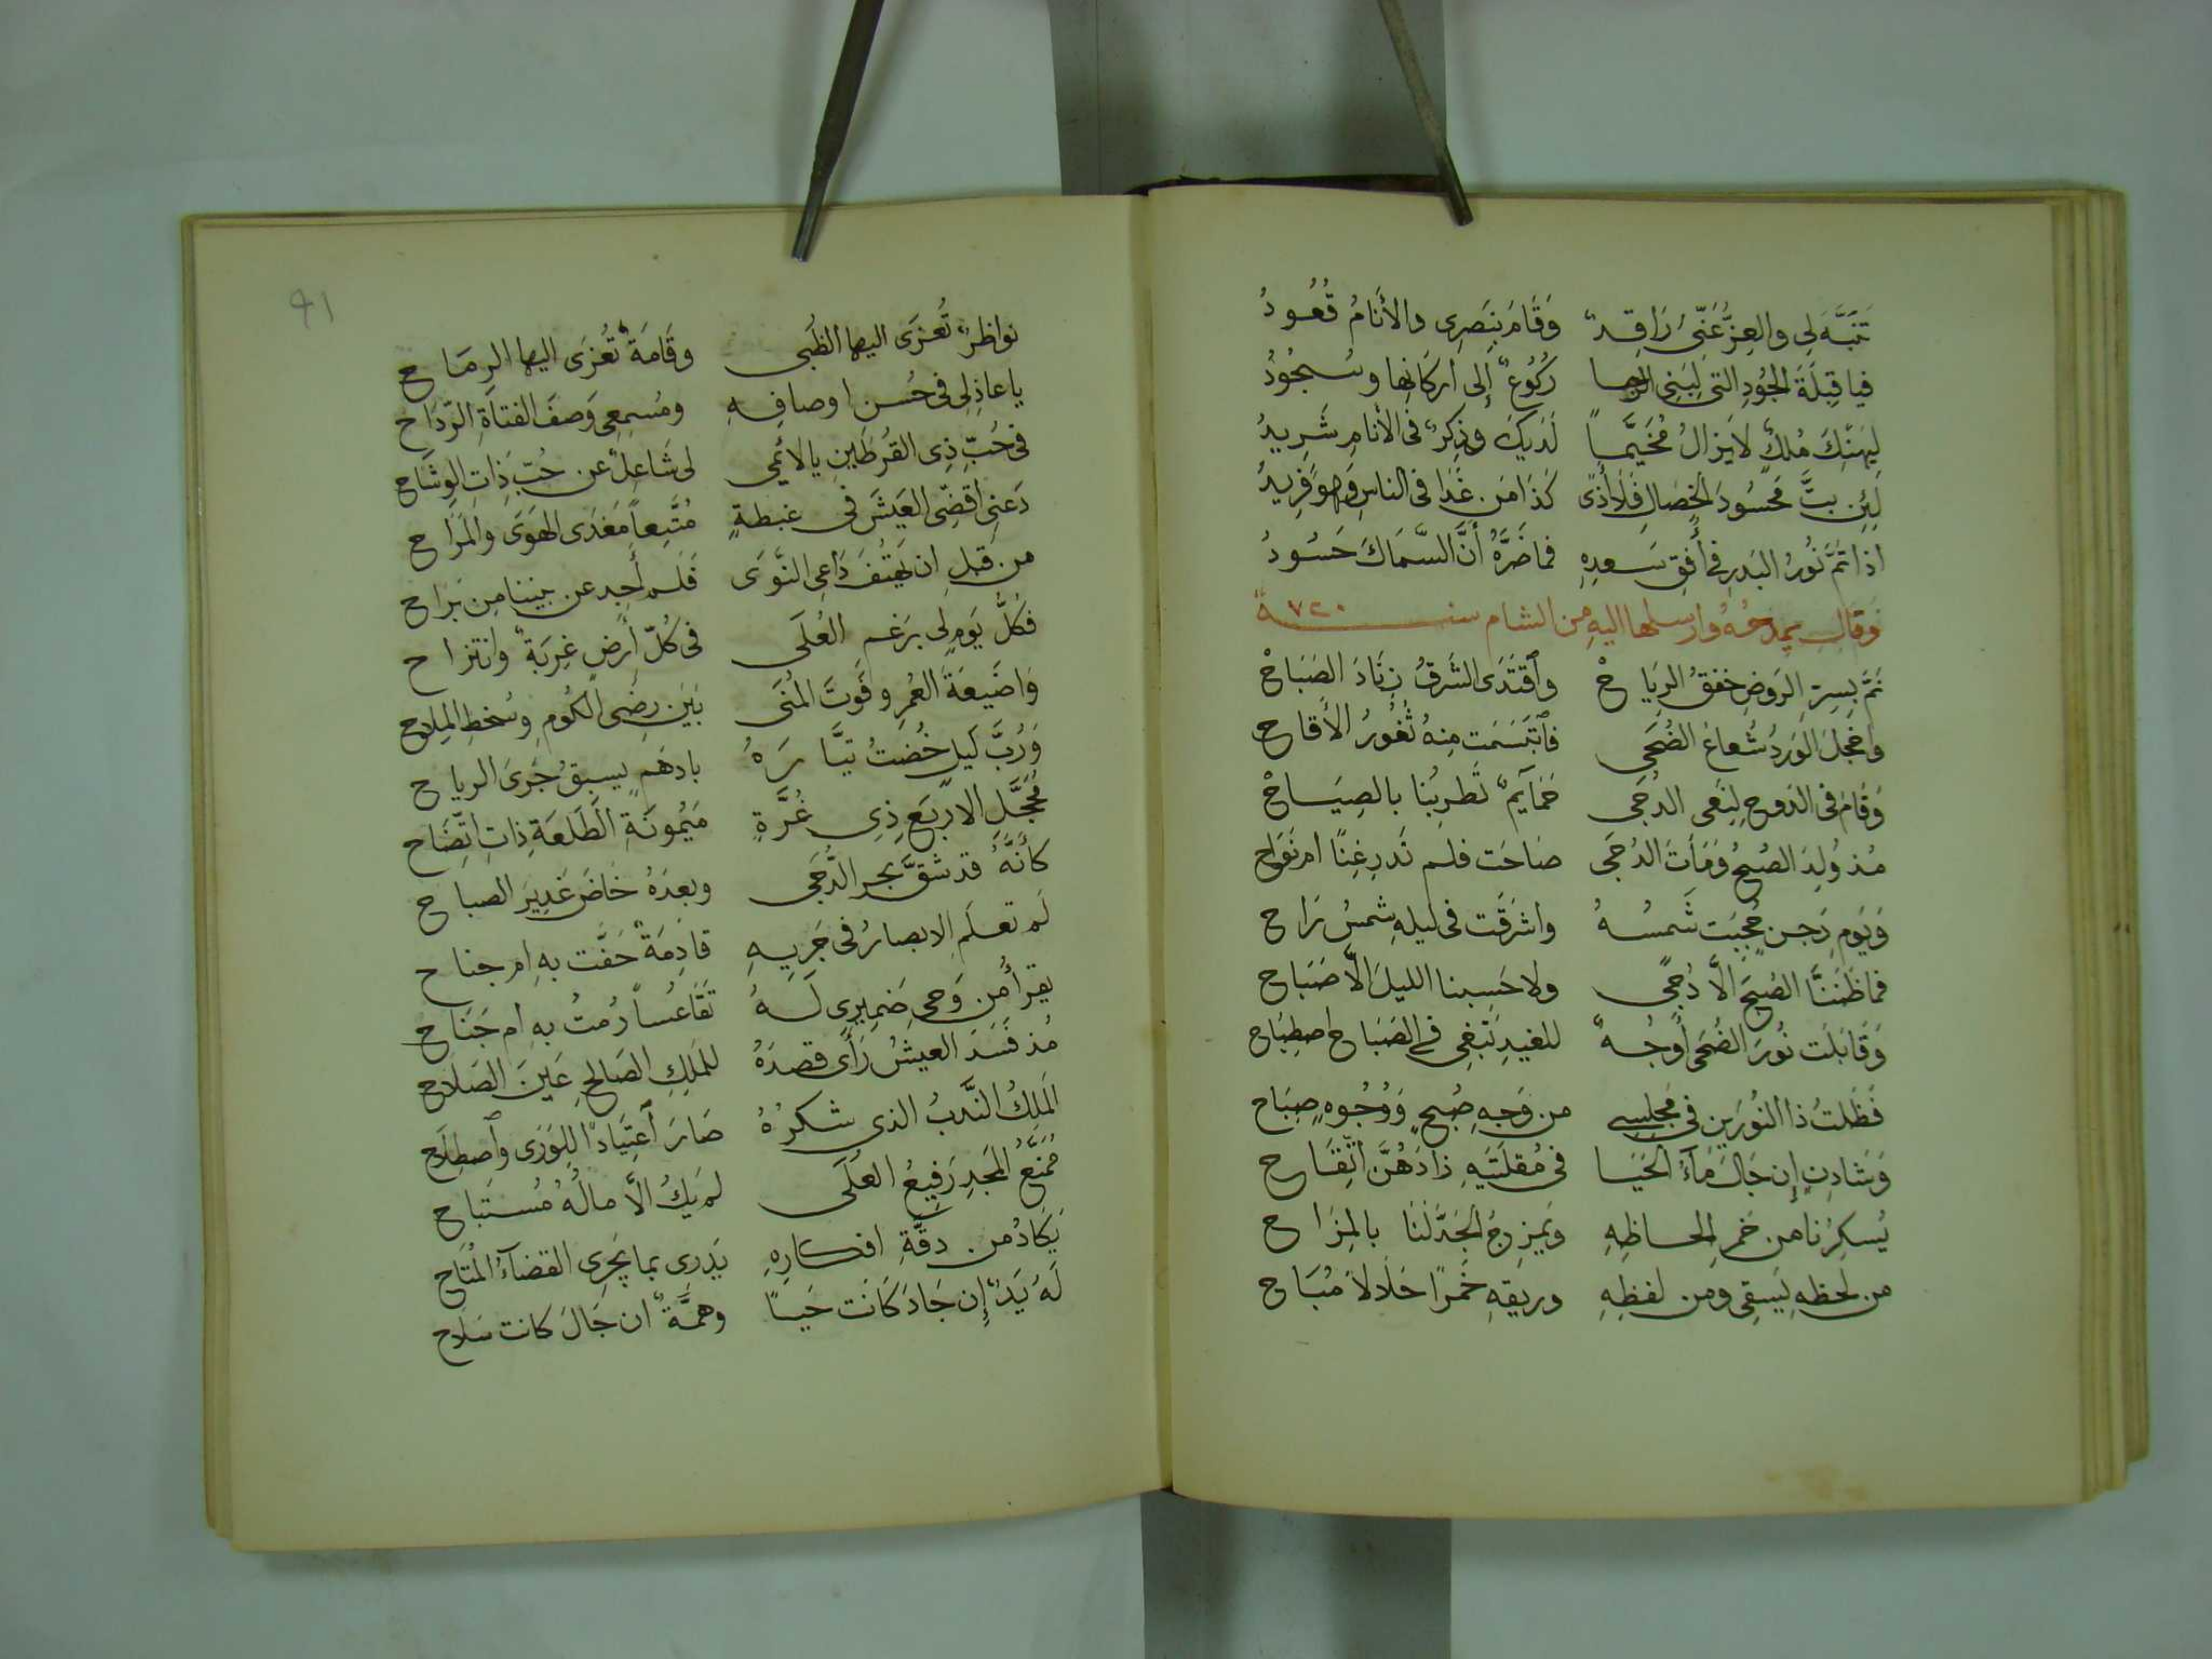 تَنَبَّهَ لِى والعِزُّ عَنّىَ رَاقِدٌ وَقَامَ بِنَصرِى والأَنَامُ قُعُودُ
فيا قِبلَةَ الجُودِ التى لِبَنِى الرجا رُكُوعٌ إِلى اركَانِها وسُجُودُ
لِيَهنِكَ مُلكٌ لا يَزالُ مُخَيَّماً لَدَيكَ وذِكرٌ فى الأنَامِ شَرِيدُ
لَئِن بتَّ مَحسُودَ الخِصَالِ فَلَا أَذًى كَذَا مَن غَدَا فى الناسِ وَهوَ فَرِيدُ
اذا تَمَّ نُورُ البَدرِ فى أُفقِ سَعدِهِ فما ضَرَّهُ أَنَّ السِّمَاكَ حَسُودُ
وَقَالَ يمدحُهُ وارسلها اليهِ من الشام سنة ٧٢٠
نَمَّ بِسِرِّ الرَوضِ خفقُ الرِيَاحْ وٱقتَدَى الشَرقُ زِنَادَ الصَبَاحْ
واخجَلَ الوَردُ شُعَاعَ الضُحَى فٱبتَسَمَت مِنهُ ثُغُورُ الأَقَاحِ
وَقَامَ فى الدَوحِ لِنَعىِ الدجَى حَمَآئِمٌ تُطرِبُنا بالصِيَاحْ
مُذ وُلِدَ الصُبحُ وَمَاتَ الدُجَى صَاحَت فلم نَدرِ غِنًا ام نَوَاح
وَيَومِ دَجنٍ حُجِبَت شَمسُهُ واشرَقَت فى ليلهِ شمسُ رَاح
فما ظَنَنَّا الصُبحَ الَّا دُجًى ولا حَسِبنا الليلَ الَّا صَبَاح
وَقَابَلَت نُورَ الضُحَى أَوجُهٌ للغيدِ تَبغِى فى الصَبَاحِ اصطِبَاح
فَظَلتُ ذا النُورَينِ فى مَجلِسِى من وَجهِ صُبحٍ وَوُجُوهٍ صِبَاح
وَشَادِنٍ إِن جَالَ مَآءُ الحَيَا فى مُقلَتَيهِ زَادَهُنَّ اتِّقَاح
يُسكِرُنا من خَمرِ الحاظِهِ وَيَمزِجُ الجَدَّ لَنَا بالمِزَاح
من لحظهِ يَسقِى ومن لفظِهِ وريقهِ خَمرًا حَلَالاً مُبَاح
٩١
نواظرٌ تُعزَى اليها الظُبى وقَامَةٌ تُعزَى اليها الرِمَاح
يا عاذِلِى فى حُسنِ اوصافِهِ ومُسمِعِى وَصفَ الفتاةِ الرَدَاح
فى حُبِّ ذِى القُرطَينِ يا لائمِى لى شَاغِلٌ عن حُبِّ ذَاتِ الوِشَاح
دَعنِى اقضّى العَيشَ فى غبطةٍ مُتَّبِعاً مَغدَى الهَوَى والمَرَاح
من قبلِ ان يَهتِفَ دَاعِى النَّوَى فَلم أَجِد عن بيننا مِن بَرَاح
فكلُّ يَومٍ لى برَغم العُلَى فى كُلّ أَرضٍ غِربَةٌ وانتزاح
وَاضَيعَةَ العُمرِ وفَوتَ المُنَى بَينَ رِضَى الكُومِ وسُخطِ المِلاح
وَرُبَّ لَيلٍ خُضتُ تيَّارَهُ بادهَمٍ يسبِقُ جَرىَ الرياح
مُحَجَّلِ الاربَعِ ذِى غُرَّةٍ مَيمُونَةِ الطَلعَةِ ذاتِ اتِّضَاح
كأَنَّهُ قد شقَّ بحر الدُّجَى وبعدَهُ خَاضَ غَدِيرَ الصباح
لَم تعلَمِ الابصارُ فى جَريِهِ قادِمَةٌ حَفَّت بهِ ام جناح
يقرأُ من وَحىِ ضَمِيرِى لَهُ تَقَاعُساً رُمتُ بهِ ام جَنَاح
مُذ فَسَدَ العيشُ رَأَى قصدَهُ للمَلِكِ الصَالِحِ عَينَ الصَلَاح
المَلِكُ النَّدبُ الذى شكرُهُ صَارَ ٱعتِيَادًا لِلوَرَى وٱصطِلَاح
مُمَنَّعُ المَجدِ رَفِيعُ العُلَى لم يَكُ الَّا مالُهُ مُستَباح
يَكَادُ من دقَّةِ افكارِهِ يَدرِى بما يَجرِى القضآءُ المُتَاح
لَهُ يَدٌ إِن جَادَ كَانَت حَياً وهمَّةٌ ان جَالَ كانت سَلَاح